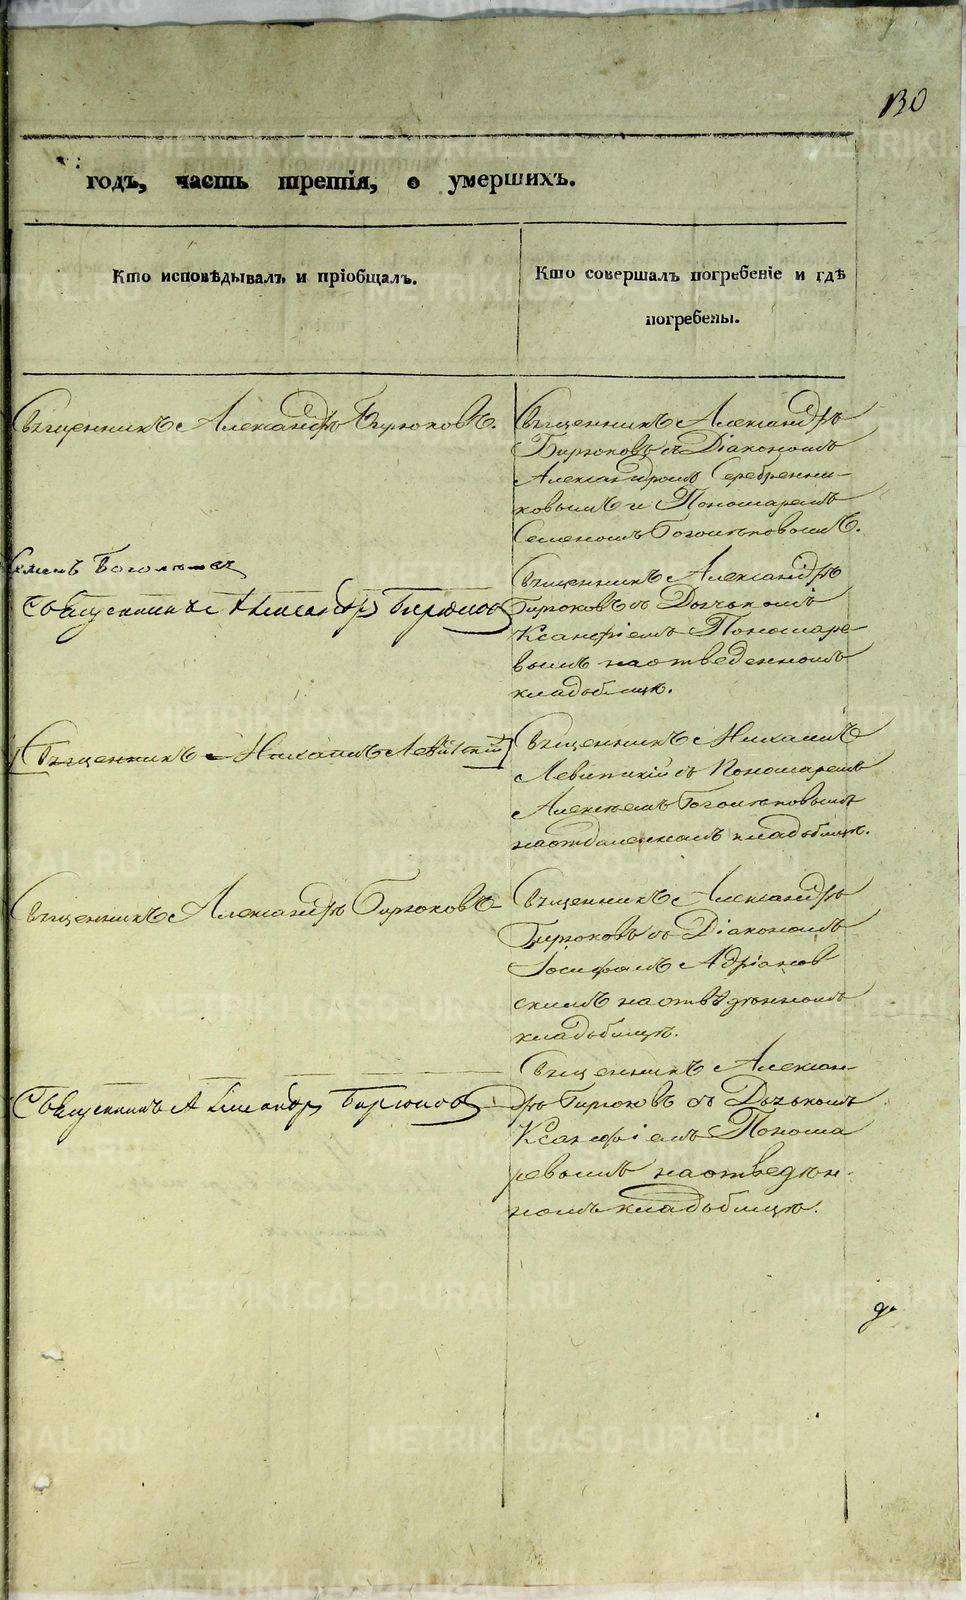 130
годъ, часть третія, о умершихъ.
Кто исповѣдывалъ и пріобщалъ.
Кто совершалъ погребеніе и гдѣ
погребены.
Священникъ Александръ Бирюковъ.
Священникъ Александръ
Бирюковъ съ Діакономъ
Александромъ Серебренни-
ковымъ и Пономаремъ
Семеномъ Боголѣповымъ.
Семенъ
Священникъ Александръ Бирюковъ
Священникъ Александръ
Бирюковъ съ Дьячкомъ
Ксанфіемъ Пономаре-
вымъ на отведенномъ
кладбищѣ.
Священникъ Михаилъ Левитскій
Священникъ Михаилъ
Левитскій съ Пономаремъ
Алексѣемъ Боголѣповымъ
на отдаленномъ кладбищѣ.
Священникъ Александръ Бирюковъ
Священникъ Александръ
Бирюковъ съ Діакономъ
Іосифомъ Адріанов
скимъ на отведѣнномъ
кладбищѣ.
Священникъ Алексан-
дръ Бирюковъ съ Дьячкомъ
Священникъ Александръ Бирюковъ
Ксанфіемъ Понома
ревымъ на отведѣн-
номъ кладбищѣ.
METRIKI.GASO-URAL.RU